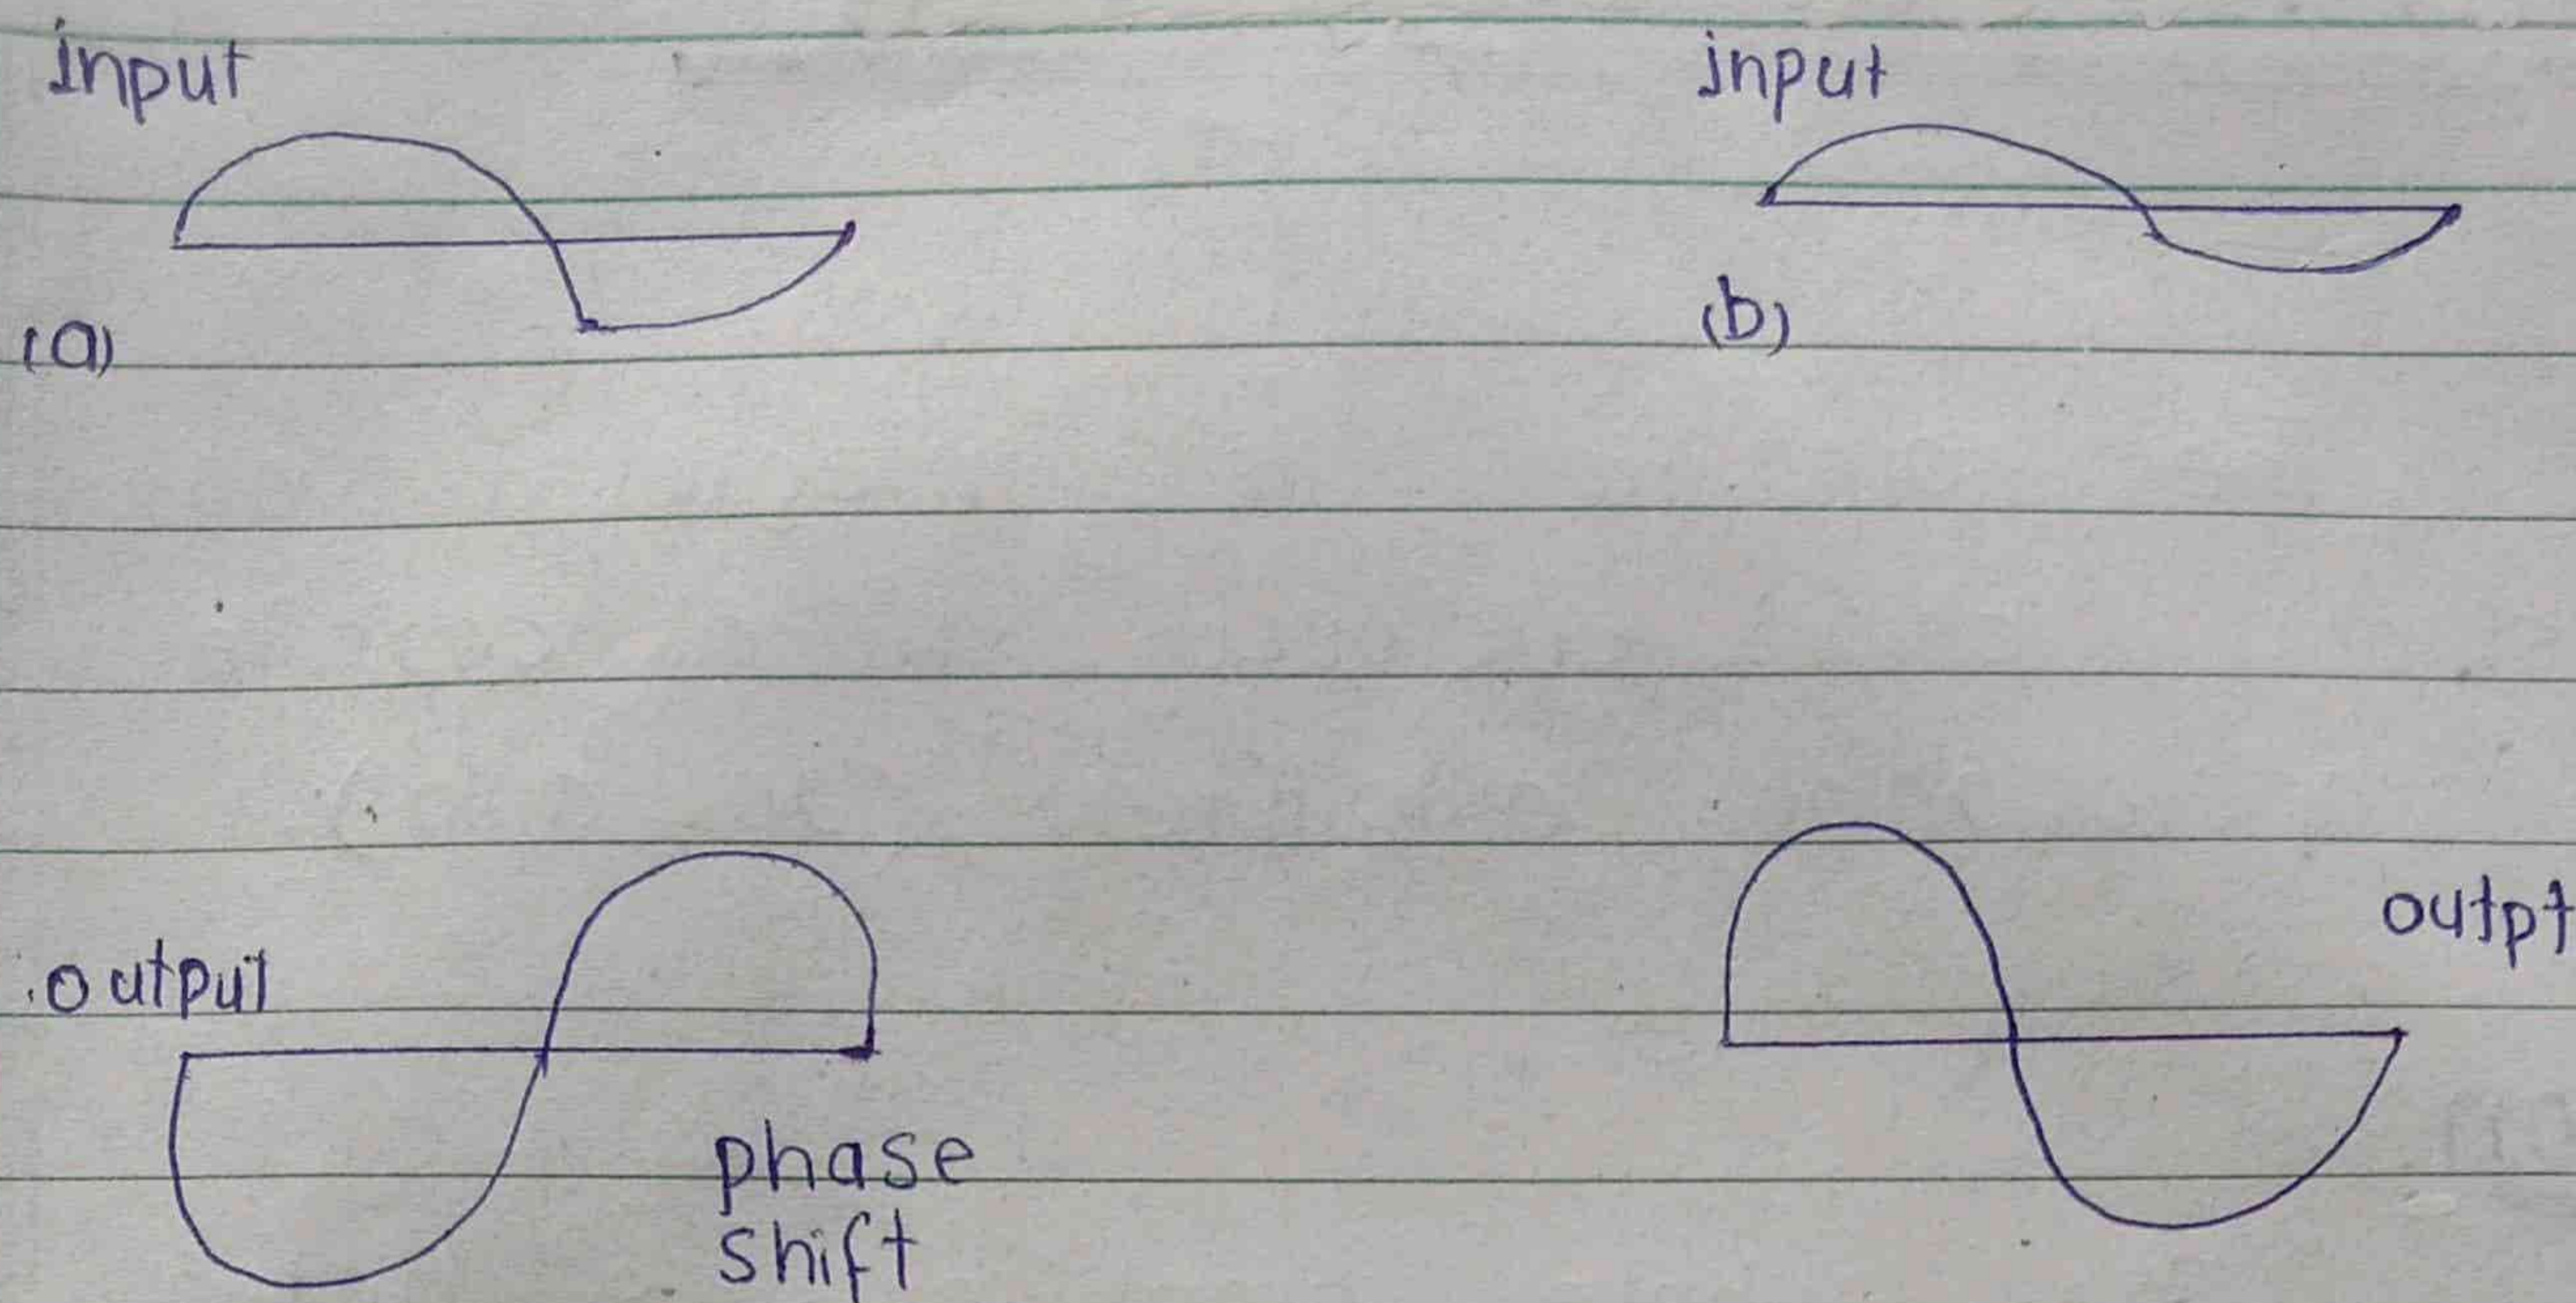 input
input
(a)
(b)
output
outpt
phase
shift